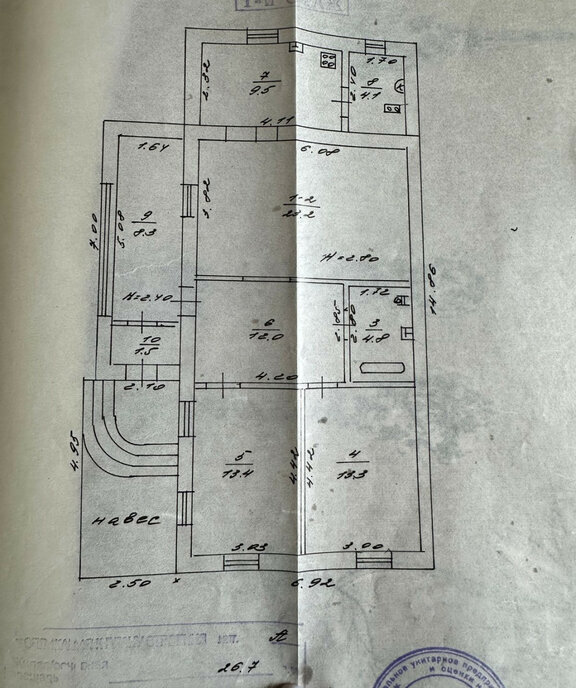 7
9.5
2.32
4.11
1.70
8
4.1
2.40
1.64
6.08
3.82
1-2
23.2
7.00
5.08
9
8.3
H=2.80
H=2.40
14.98
1.72
3
4.8
2.85
2.80
6
12.0
4.20
10
1.5
2.10
4.95
5
13.4
4.42
4.42
4
13.3
навес
3.03
3.00
2.50
6.92
А
26.7